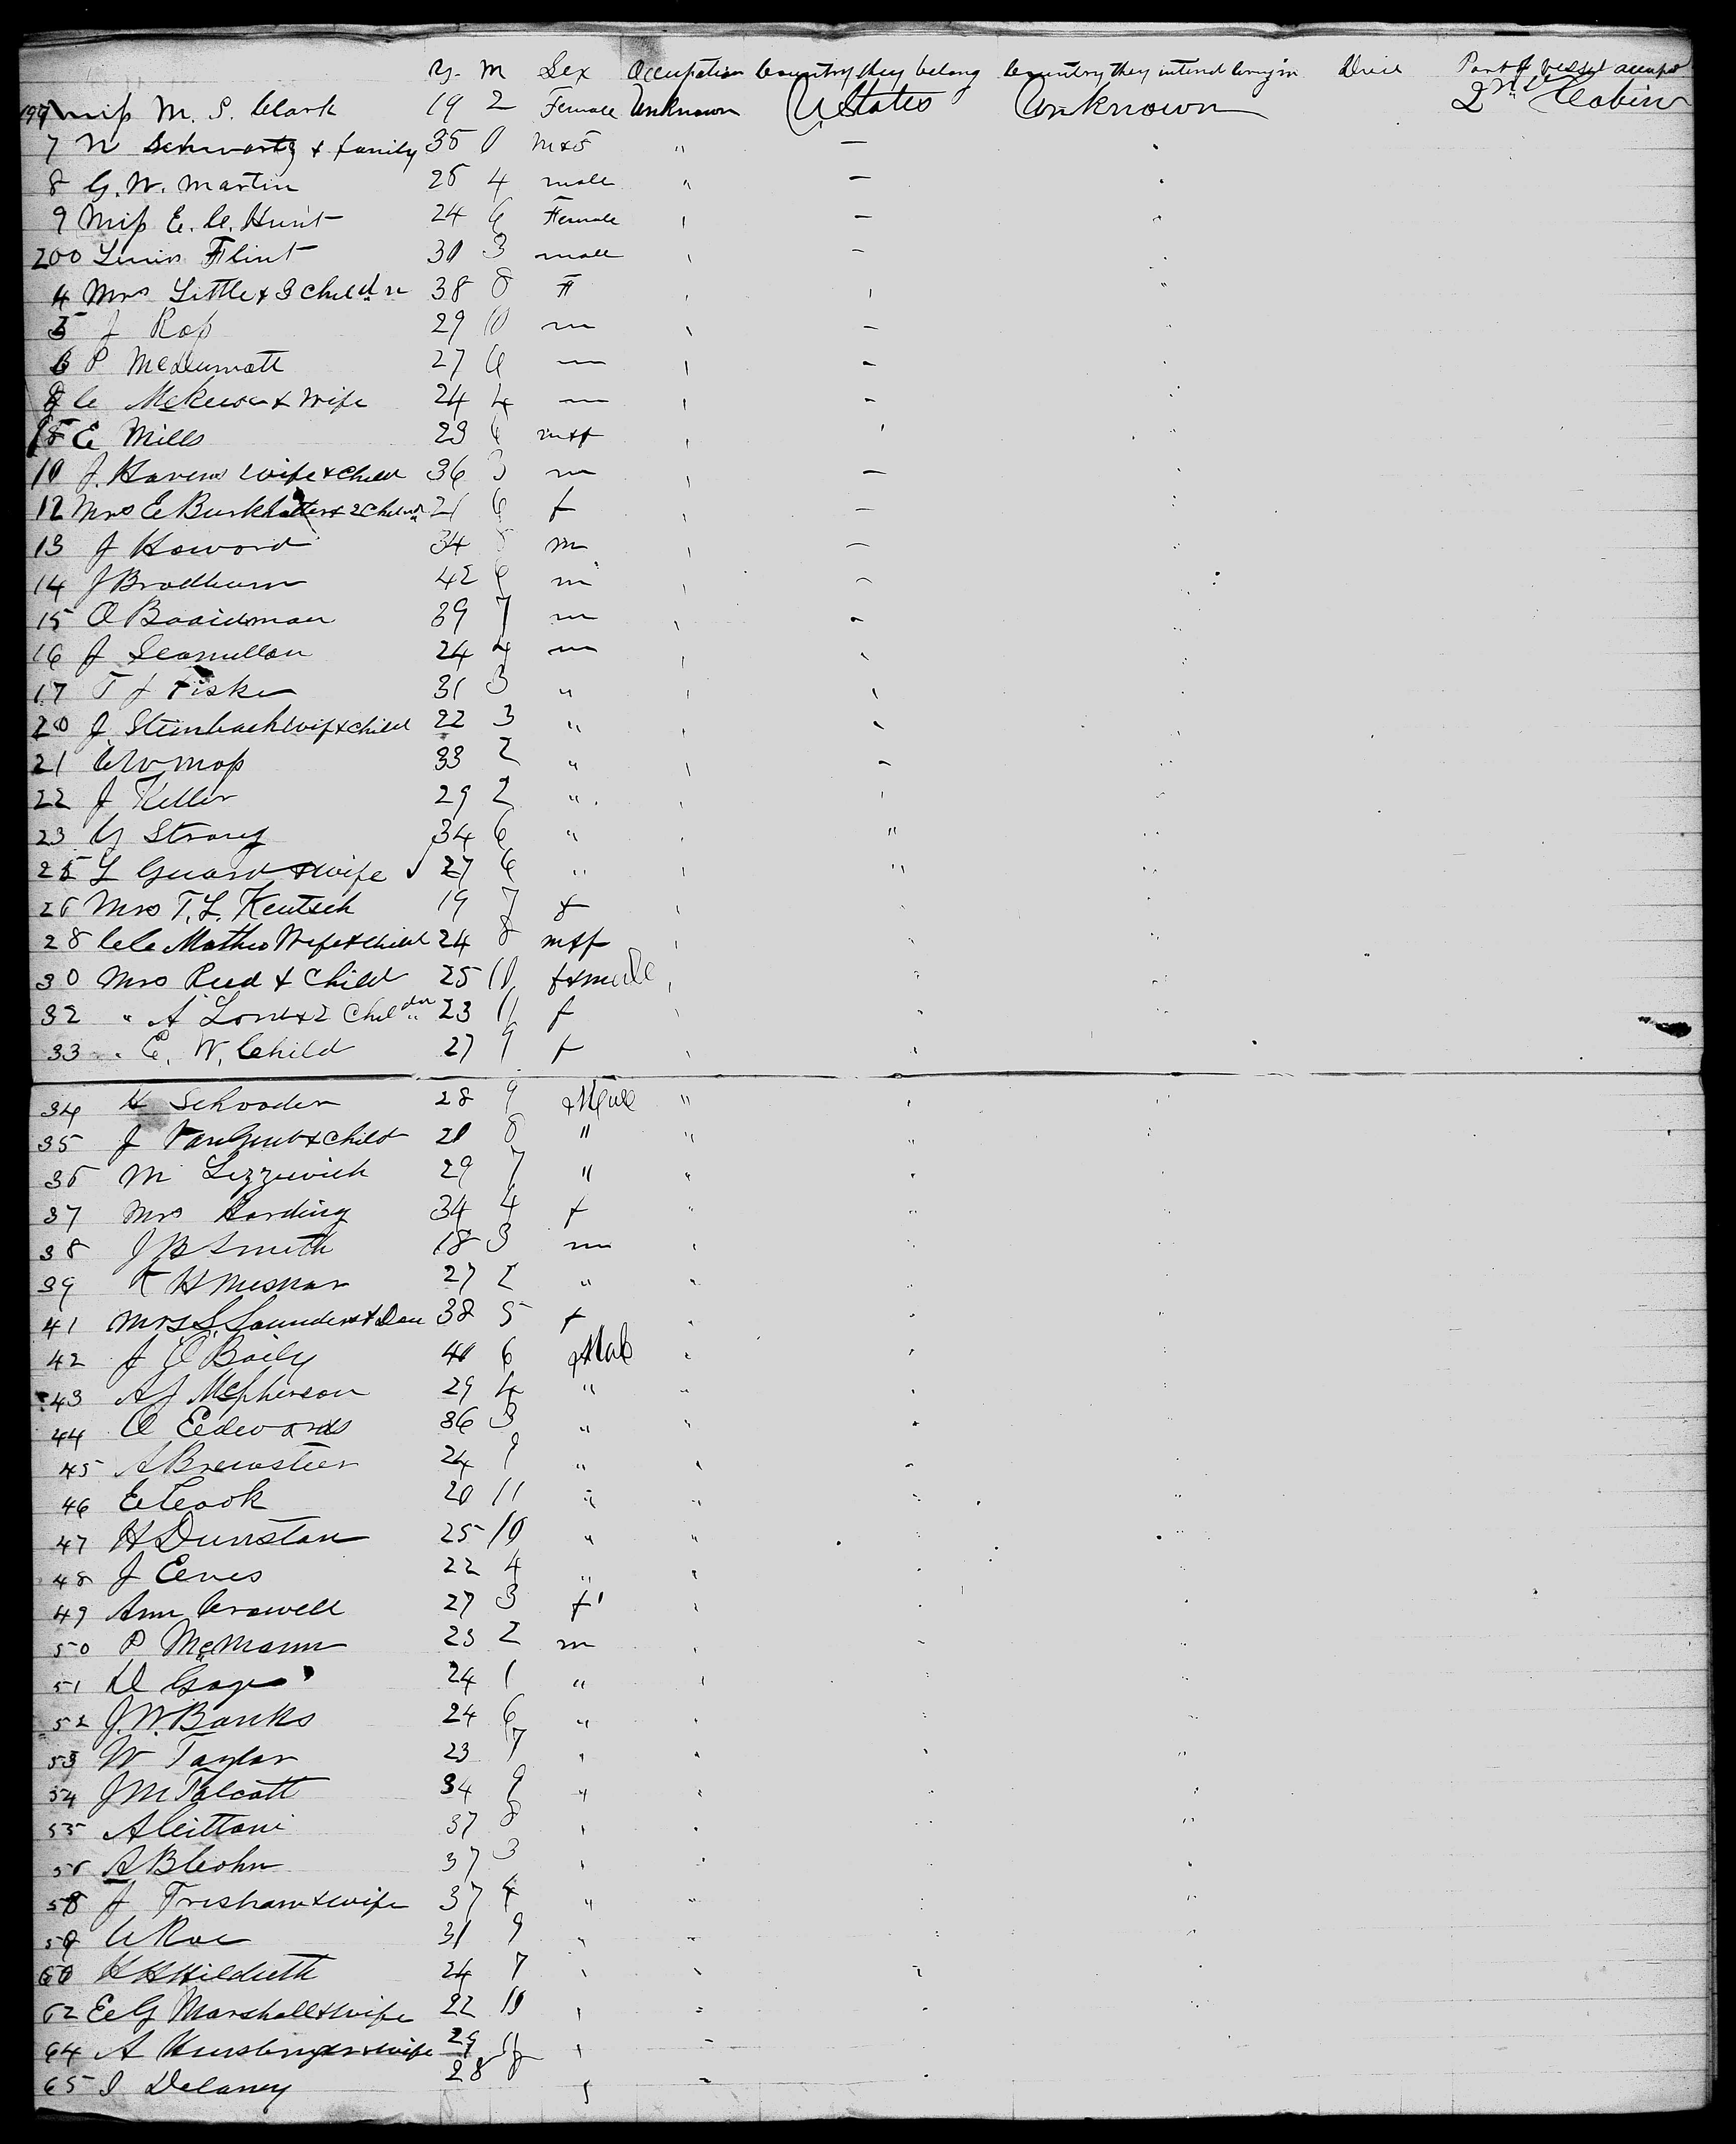 Y. M Sex Occupation Country they belong Country they intend living in Died Part of vessel occupd
199 Miss M. S. Clark 19 2 Female Unknown U States Unknown 2nd Cabin
7 N Schwartz & family 35 0 M&F "
8 G. W. Martin 25 4 male "
9 Miss E. C. Hunt 24 6 Female
200 Flint 30 3 male
4 Mrs Little & 3 Childn 38 8 F
5 J Ross 29 10 m
6 P McDermott 27 6 m
8 C & Wife 24 4 m
E Mills 23 6 m&f
10 J. Havens Wife & Child 36 3 m
12 Mrs E Burkhalter & 2 Childn 21 6 f
13 J Howard 34 8 m
14 J Bradburn 42 6 m
15 A Boardman 39 7 m
16 J 24 4 m
17 T J Fisker 31 3 "
20 J. Steinbach Wife & Child 22 3 "
21 C W Moss 33 2 "
22 J Keller 29 2 "
23 G Strong 34 6 " "
25 L Guard & Wife 27 6 " "
26 Mrs T. L. Keutsch 19 7 f
28 C C Mathew Wife & Child 24 8 m&f
30 Mrs Reed & Child 25 10 f & male
32 " A Lord & 2 Childn 23 11 f
33 " E. W. Child 27 9 f
34 H Schrooder 28 9 Male "
35 J & Child 20 8 " "
36 M Lizzewich 29 7 " "
37 Mrs Harding 34 4 f
38 J B Smith 18 3 m
39 K H 27 2 "
41 Mrs S. Saunders & Dau 38 5 f
42 J C Baily 40 6 Male
43 A J McPherson 29 4 "
44 C Edwards 36 3 "
45 A Brewster 24 9 "
46 E Cook 20 11 "
47 H Dunstan 25 10 " "
48 J Eeves 22 4 "
49 Ann Crowell 27 3 f
50 P McMann 23 2 m
51 D Gage 24 1 "
52 J. W. Banks 24 6 "
53 W Taylor 23 7
54 J M Talcott 34 9 "
55 A Cittani 37 8
56 A B Cohn 37 3
58 J Trisham & wife 37 4 " "
59 C Roe 31 9
60 H H Hildreth 24 7
62 E G Marshall & wife 22 10
64 A & wife 29 11
65 J Delaney 28 8